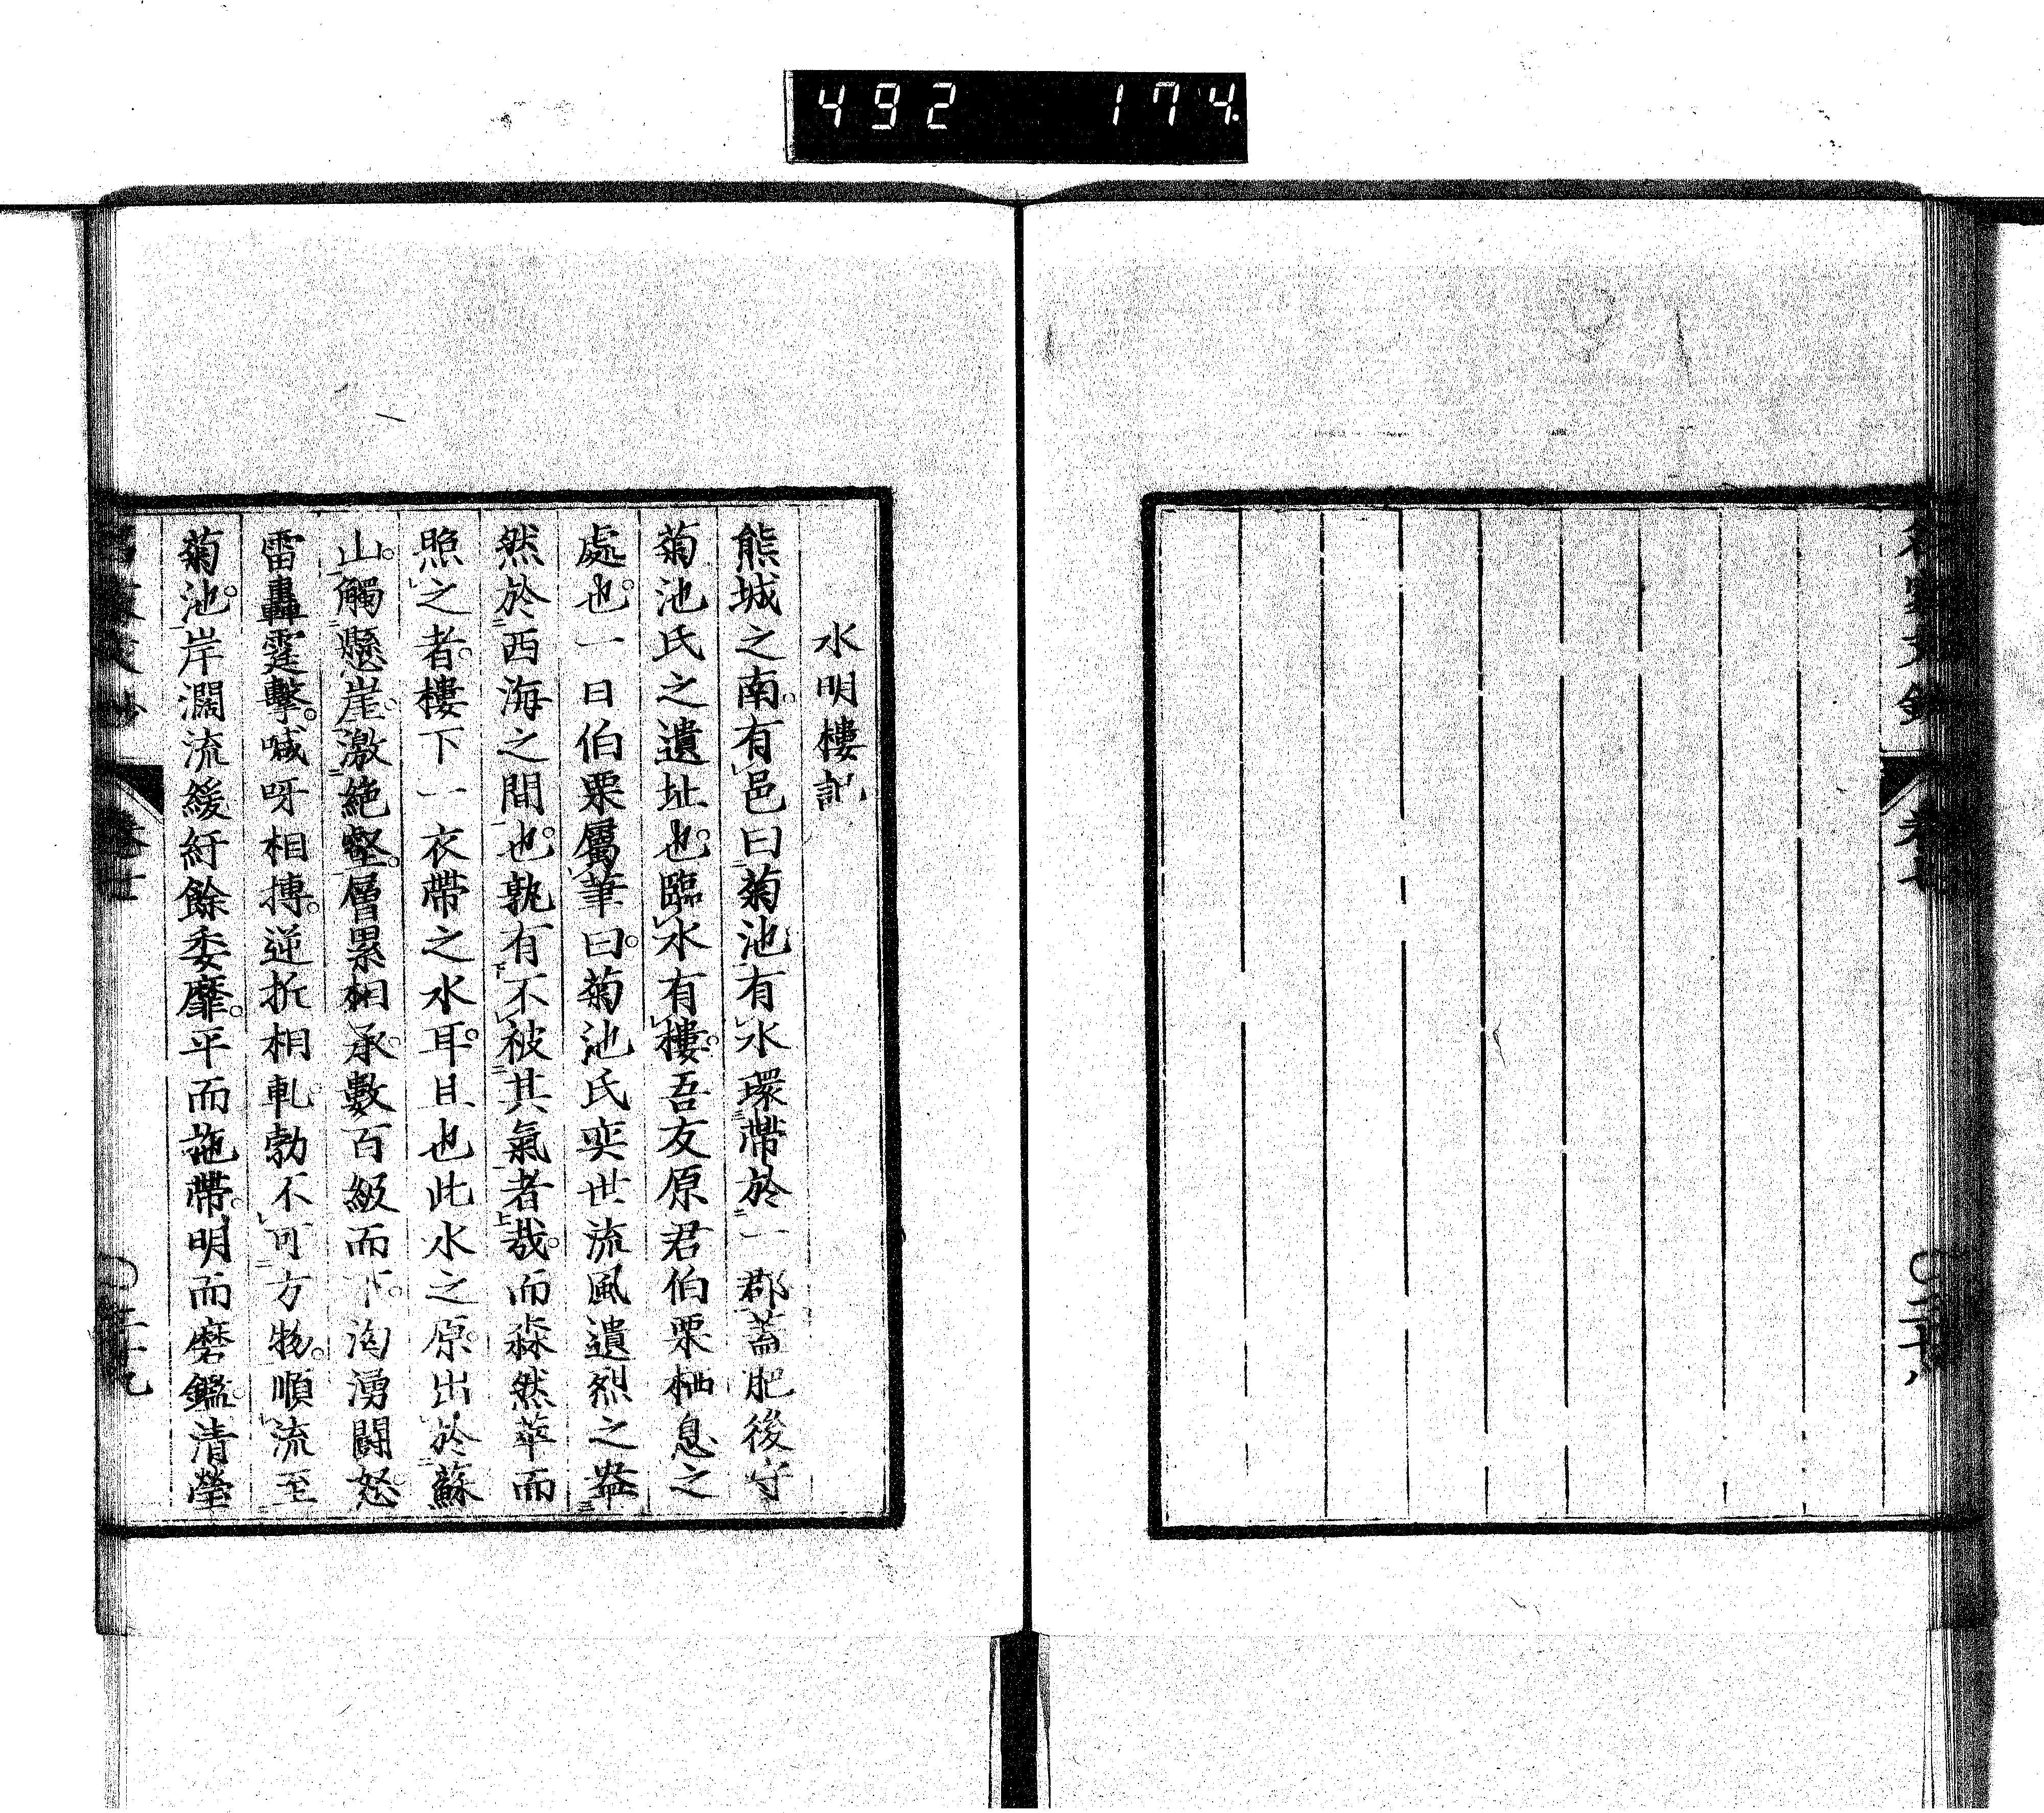 492 174.
水明樓記
熊城之南。有邑曰菊池有水環帶於一郡蓋肥後守
菊池氏之遺址也。臨水有樓。吾友原君伯栗栖息之
處也。一日伯栗屬筆曰。菊池氏奕世流風遺烈之盎
然於西海之間也。孰有不被其氣者哉。而淼然萃而
照之者。樓下一衣帶之水耳。且也此水之原。出於蘇
山。觸懸崖。激絶壑。層累相承。數百級而下。洶湧鬪怒
雷轟霆擊。喊呀相搏。逆折相軋。勃不可方物。順流至
菊池。岸濶流緩紆餘委靡。平而拖帶。明而磨鑑。清瑩